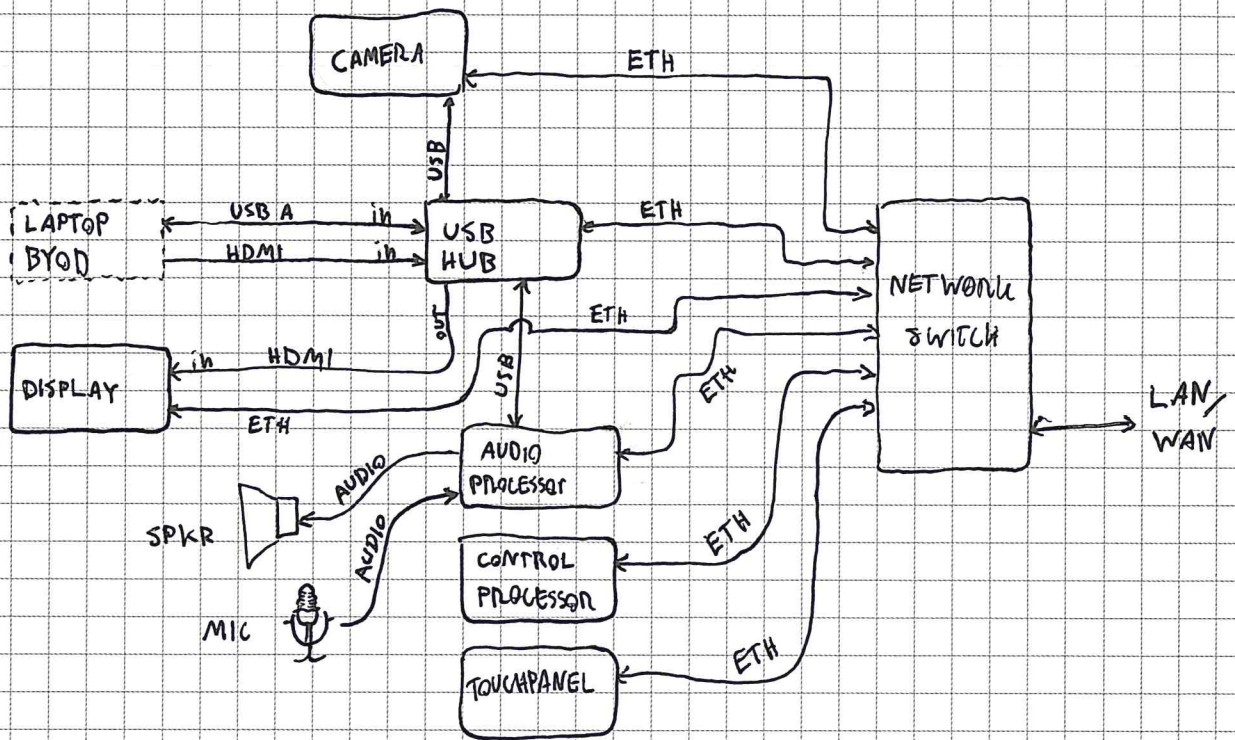 CAMERA
ETH
USB
LAPTOP
BYOD
USB A
in
HDMI
in
USB
HUB
ETH
NETWORK
SWITCH
OUT
ETH
in
HDMI
DISPLAY
ETH
USB
ETH
LAN/
WAN
AUDIO
PROCESSOR
AUDIO
SPKR
AUDIO
MIC
CONTROL
PROCESSOR
ETH
TOUCHPANEL
ETH